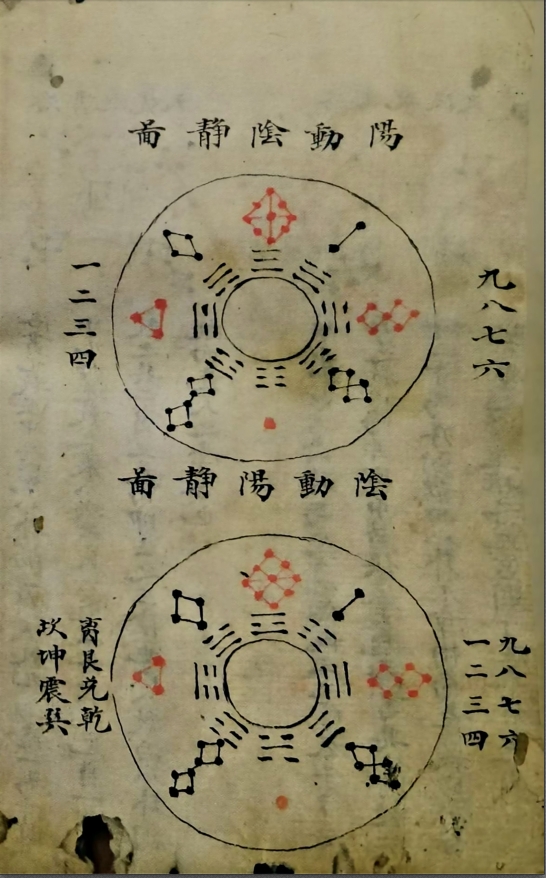 陽動陰靜啚
九八七六
一二三四
陰動陽靜啚
九八七六
一二三四
离艮兊乾
坎坤震巽